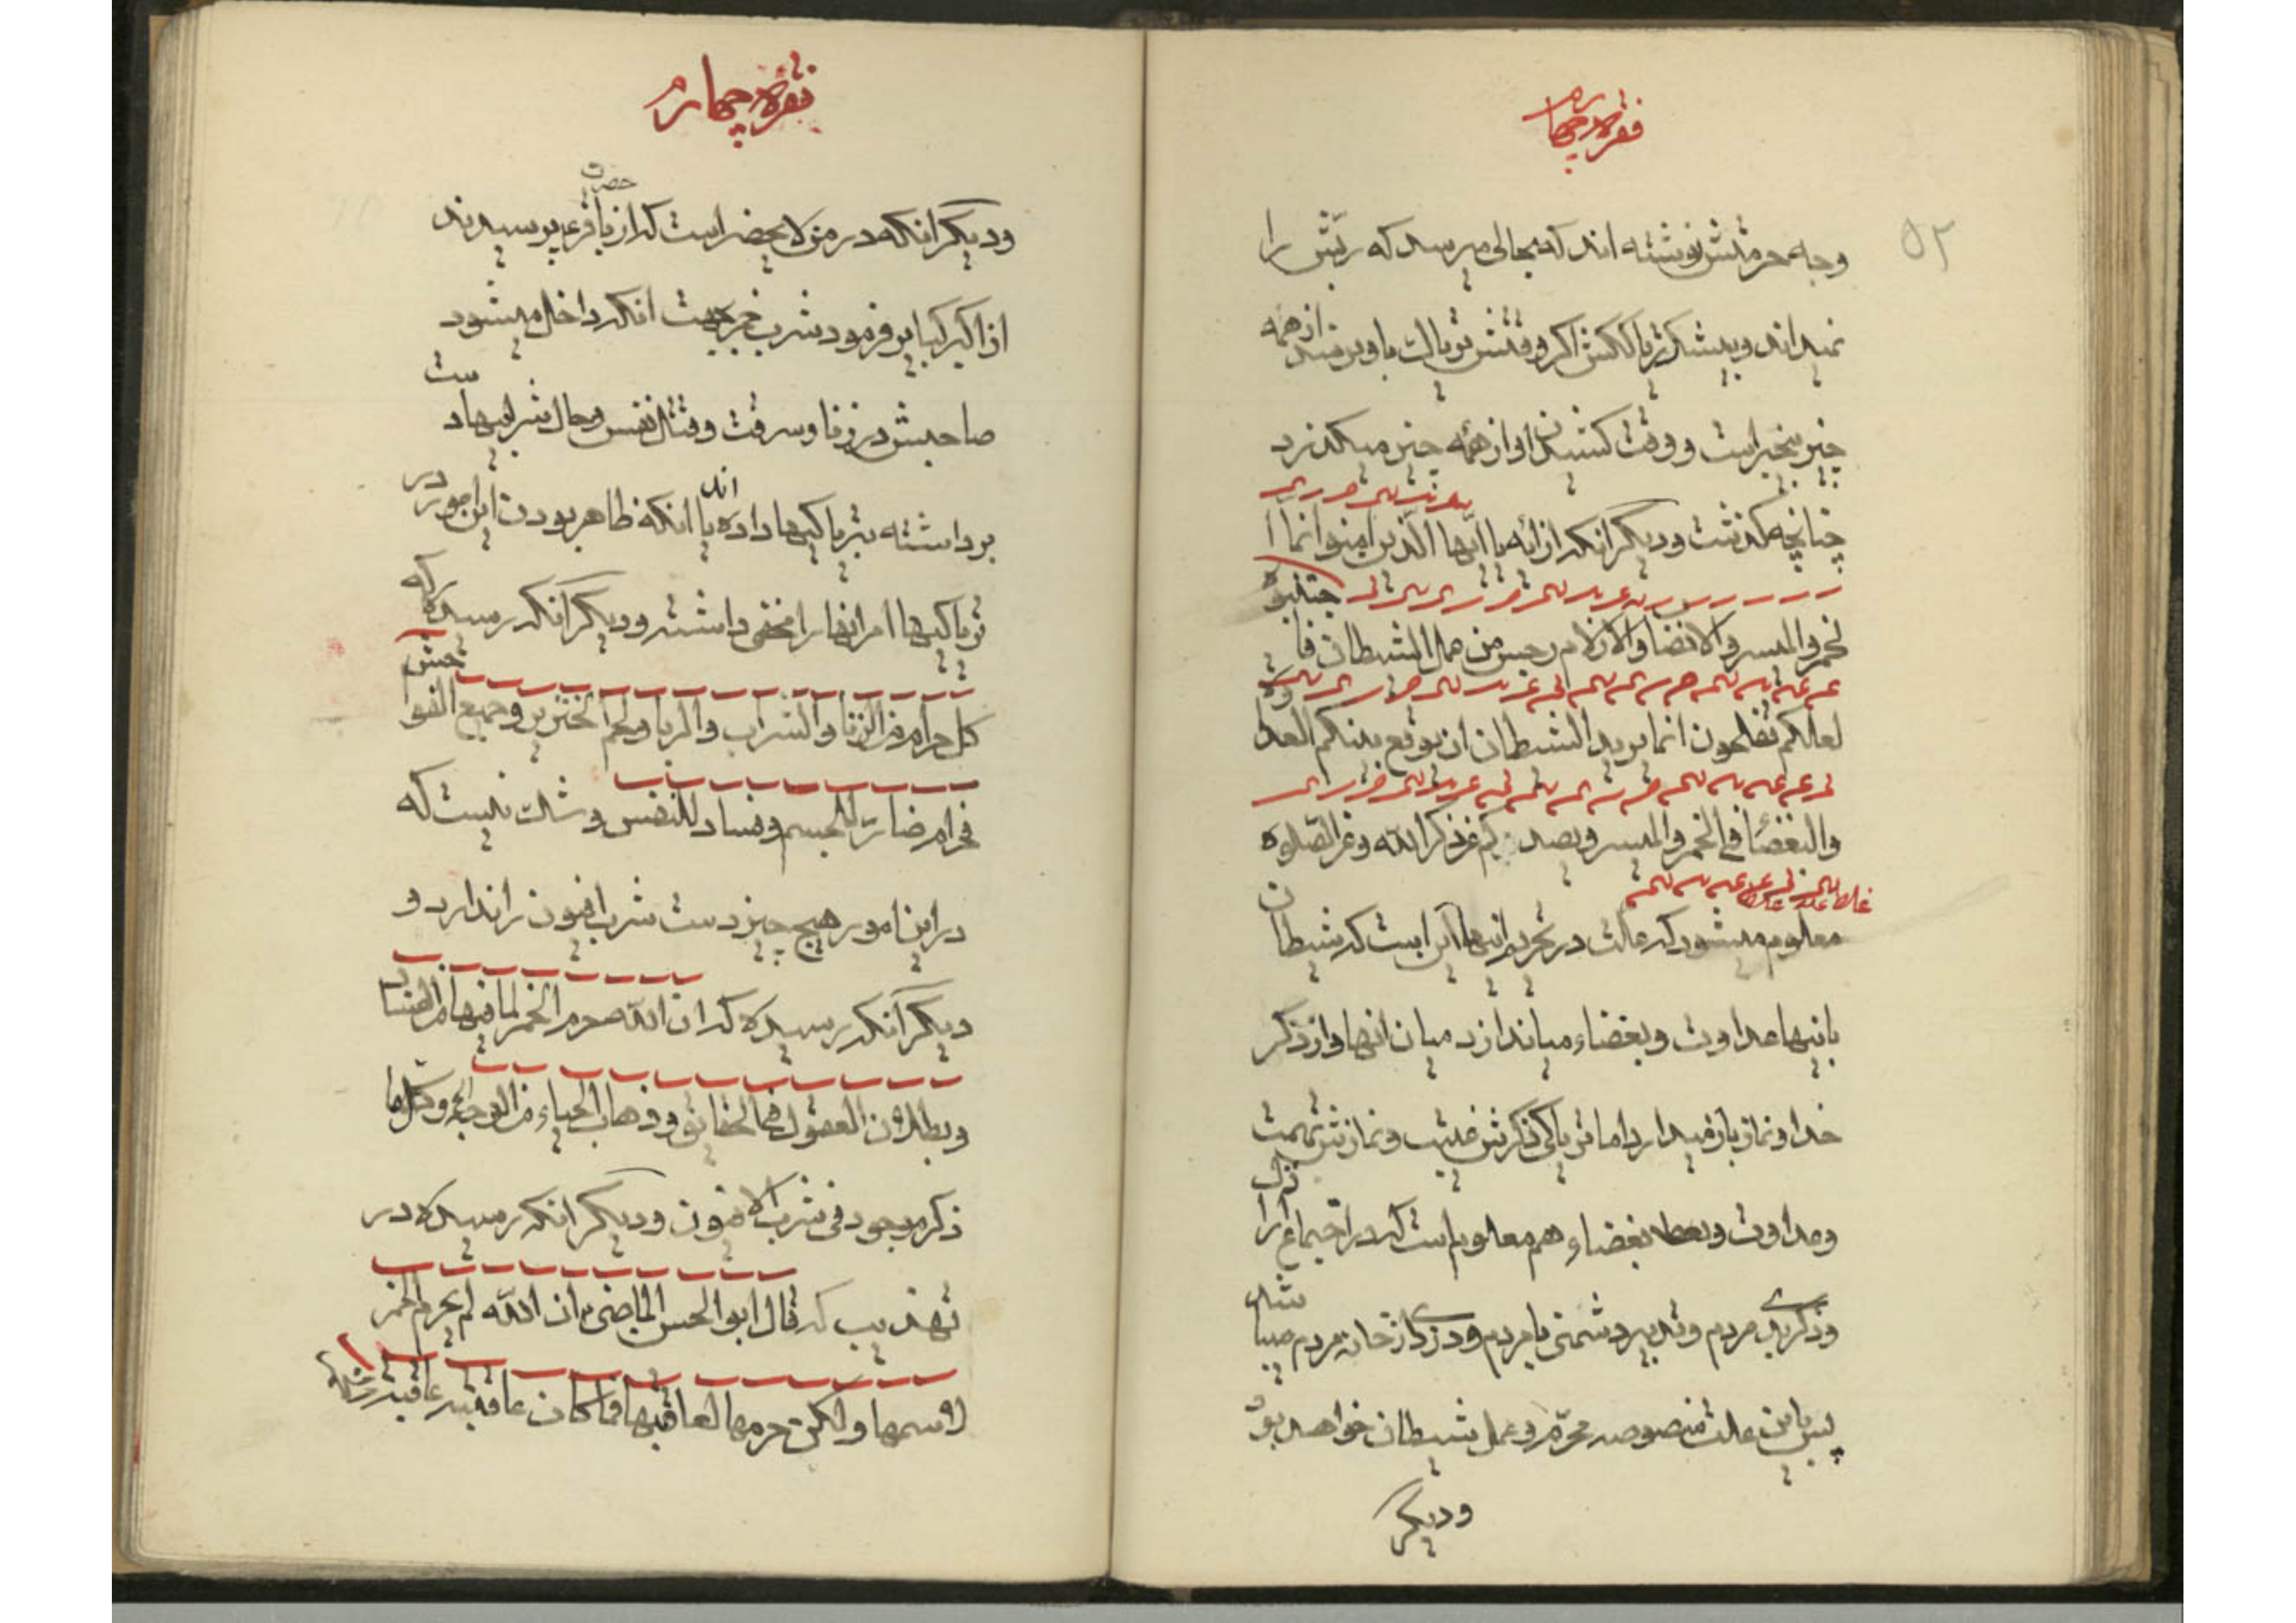 فقره چهارم
۵۲
وجه حرمتش نوشته اند که بحالی میرسد که ربّش را
نمیداند و بیشک تریاککش اکر وقتش تریاک باو نرسد از همه
چیز بیخبر است و وقت کشیدن او از همه چیز میکذرد
چنانچه کذشت و دیکر انکه از آیه یا ایّها الّذین امنوا انّما ا
لخمر والمیسر والانصاب والازلام رجس من عمل الشیطان فاجتنبوه
لعلکم تفلحون انما یرید الشیطان ان یوقع بینکم العداوة
والبغضاء فی الخمر والمیسر ویصدکم عن ذکر الله وعن الصّلوة
معلوم میشود که علت در تحریم اینها این است که شیطان
باینها عداوت و بغضاء میاندازد میان انها و از ذکر
خدا و نماز باز میدارد اما تریاکی ذکرش غیبت و نمازش تهمت
وعداوت و بغضاء هم معلوم است که در اجتماع
وذکر بدی مردم و تدبیر دشمنی با مردم و دزدی از خانه مردم میباشد
پس باین علت منصوصه محرّم و عمل شیطان خواهد بود
ودیکر
فقره چهارم
ودیکر انکه در من لا یحضر است که از حضرت باقر ع پرسیدند
از اکبر کبایر فرمود شرب خمر بجهت انکه داخل میشود
صاحبش در زنا و سرقت و قتل نفس و حال شرابیها دست
برداشته بتریاکیها داده اند با انکه ظاهر بودن این امور در
تریاکیها امر انها را مخفی داشته و دیکر انکه رسیده که
کل حرام من الزنا والشراب والربا ولحم الخنزیر و جمیع الفواحش
حرام ضارّ للجسم و فساد للنفس و شک نیست که
در این امور هیچ چیز دست شرب افیون را ندارد و
دیکر انکه رسیده که ان الله حرم الخمر لما فیها من الفساد
وبطلان العقول فی الحقائق و ذهاب الحیاء من الوجه و کل ما
ذکر موجود فی شرب الافیون و دیکر انکه رسیده در
تهذیب که قال ابوالحسن الماضی ع ان الله لم یحرم الخمر
لاسمها ولکن حرمها لعاقبتها فما کان عاقبته عاقبة